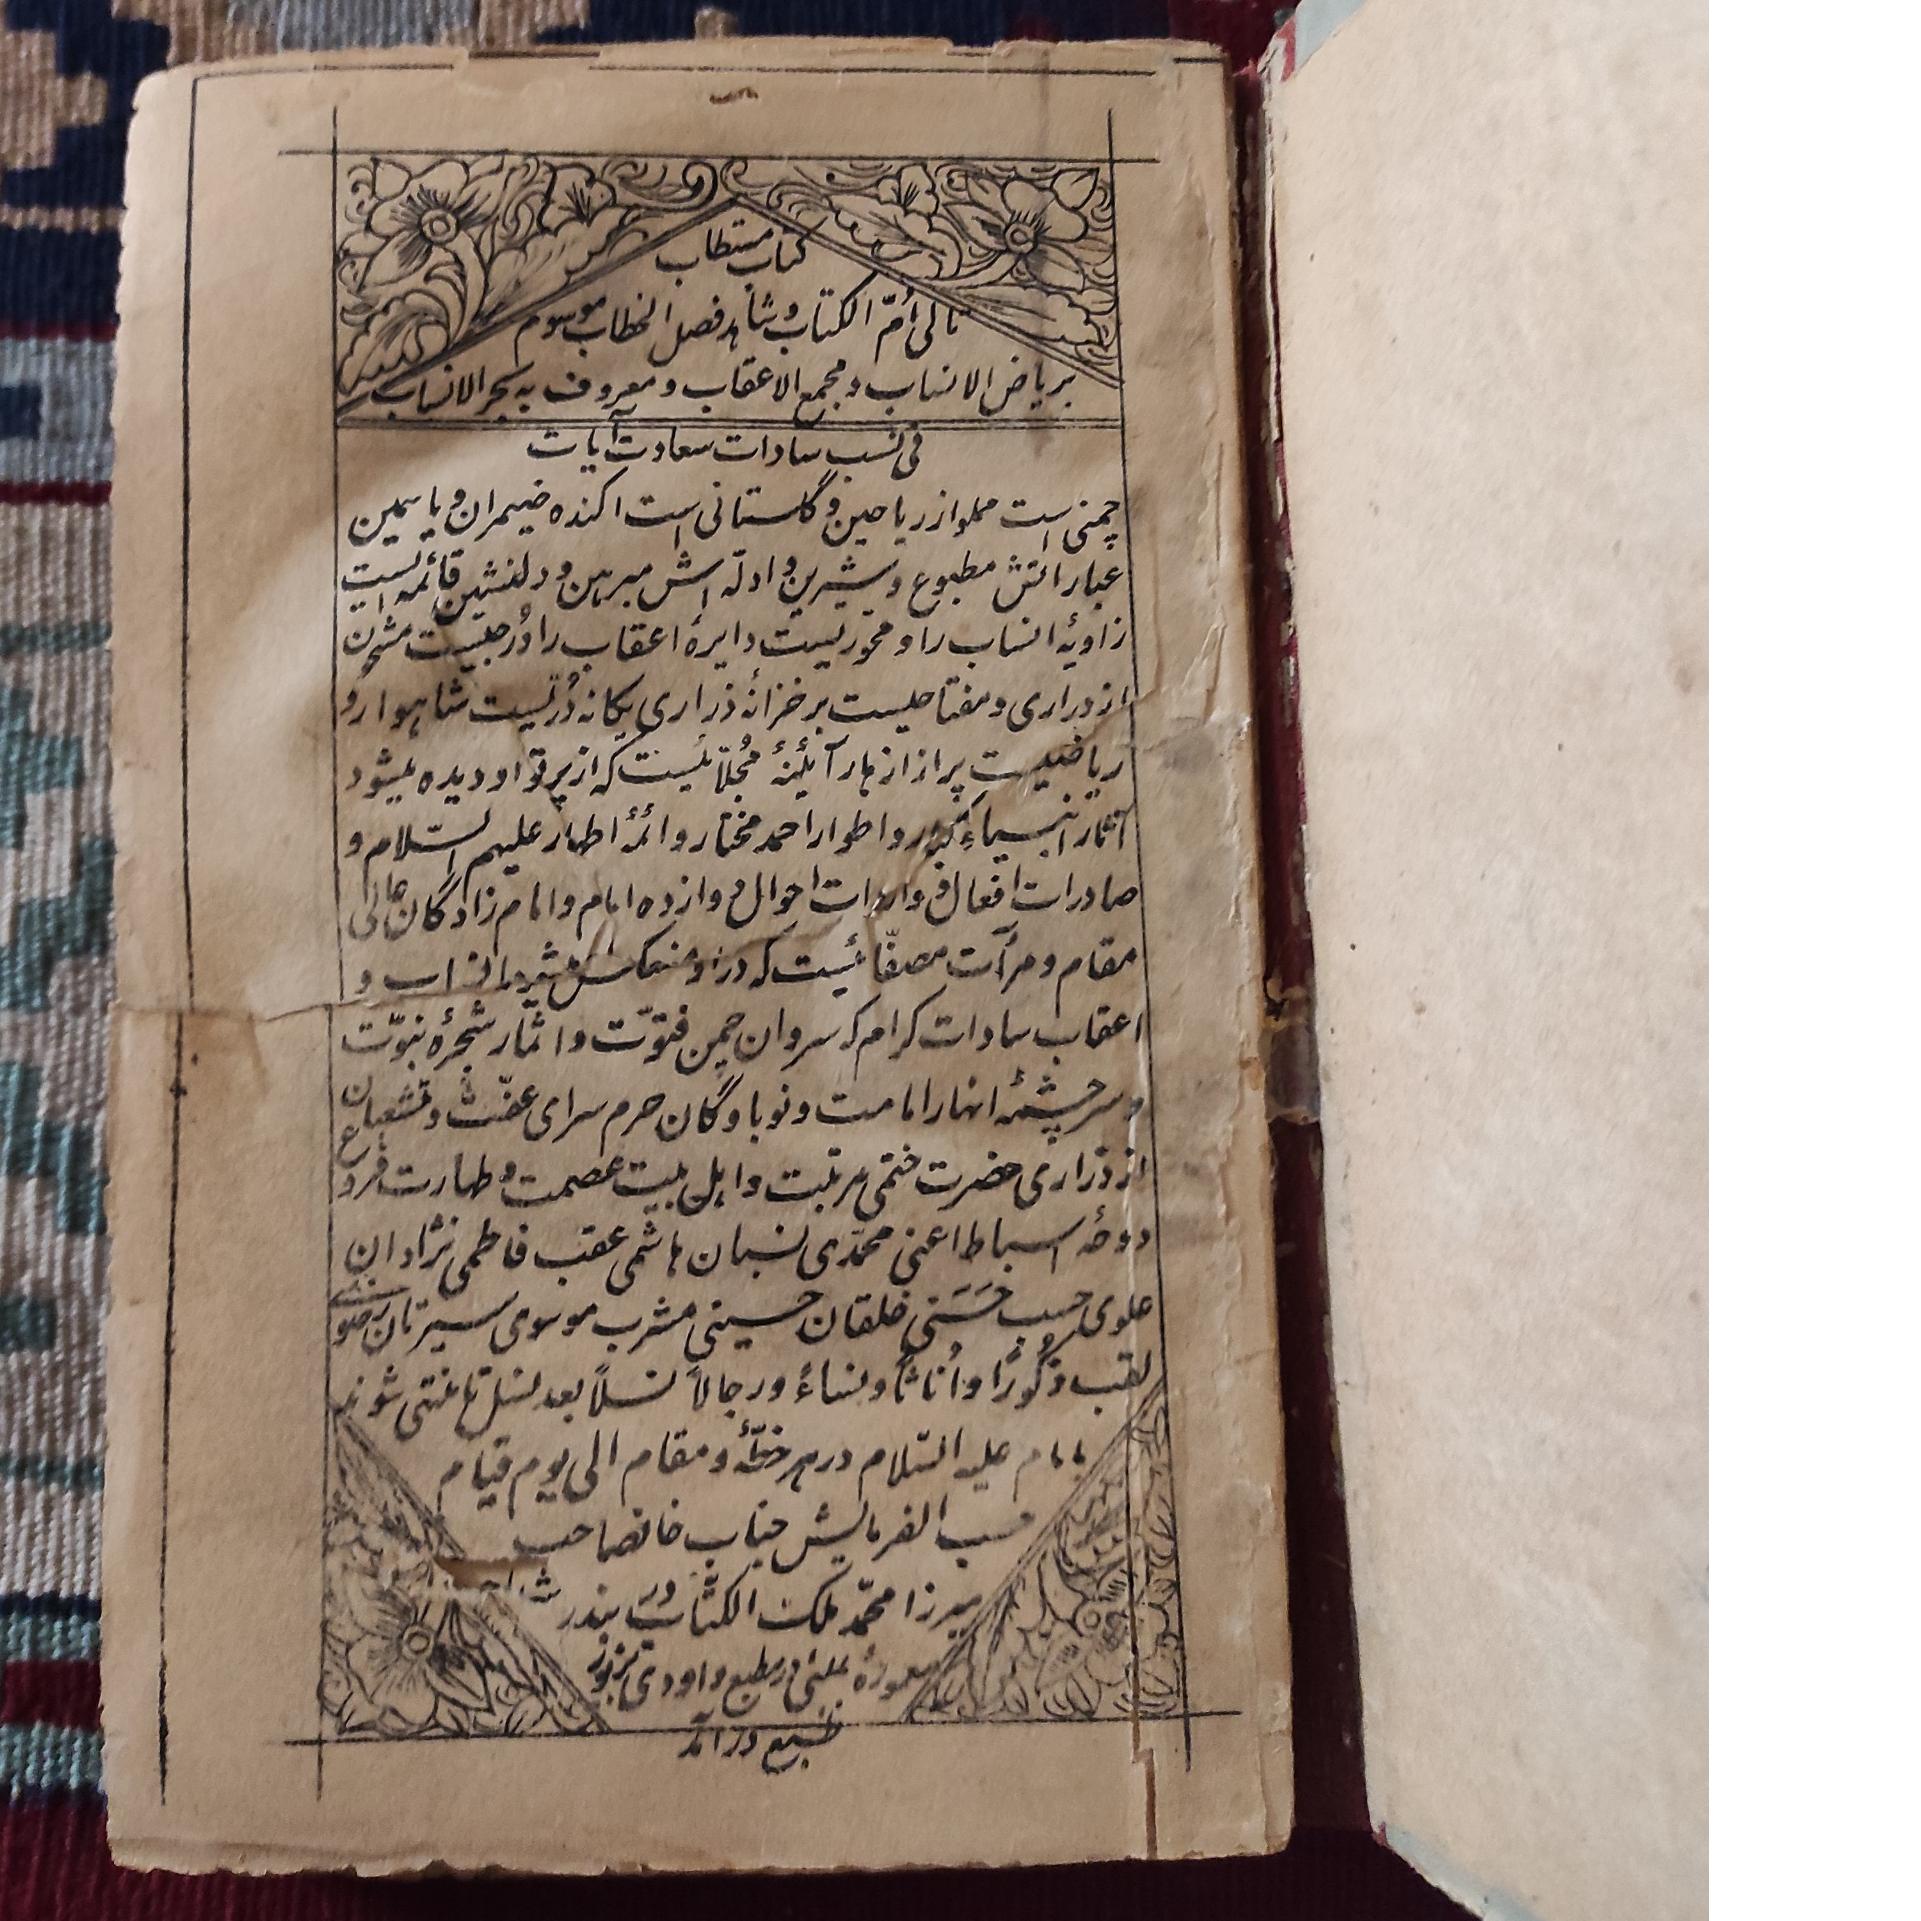 کتاب مستطاب
تالی اُمّ الکتاب و شاهد فصل الخطاب موسوم
بریاض الانساب و مجمع الاعقاب و معروف به بحر الانساب
فی نسب سادات سعادت آیات
چمنی است مملو از ریاحین و گلستانی است اکنده ضیمران و یاسمین
عباراتش مطبوع و شیرین و ادلّه اش مبرهن و دلنشین قائمه ایست
زاویهٔ انساب را و محوریست دایرهٔ اعقاب را دُرجیست مشحون
از دراری و مفتاحیست بر خزانهٔ ذراری یکانه دُرّیست شاهوار و
ریاضیست پر از ازهار آئینهٔ مُجلّائیست که از پرتو او دیده میشود
آثار انبیاء کبار و اطوار احمد مختار و ائمهٔ اطهار علیهم السّلام و
صادرات افعال و واردات احوال دوازده امام و امام زادگان عالی
مقام و مرآت مصفّائیست که در او منعکس میشود انساب و
اعقاب سادات کرام که سروان چمن فتوّت و اثمار شجرهٔ نبوّت
و سرچشمهٔ انهار امامت و نوباوگان حرم سرای عفّت و منشعبان
از ذراری حضرت ختمی مرتبت و اهل بیت عصمت و طهارت فروع
دوحهٔ اسباط اعنی محمّدی نسبان هاشمی عقب فاطمی نژادان
علوی حسب حَسَنی خلقان حسینی مشرب موسوی سیرتان رضوی
لقب ذکُورًا و اُناثاً و نساءً و رجالاً نسلاً بعد نسل تا منتهی شوند
بامام علیه السّلام در هر خطّهٔ و مقام الی یوم قیام
حسب الفرمایش جناب خانصاحب
میرزا محمّد ملک الکتّاب در بندر
معمورهٔ بمبئی در مطبع داودی بزیور
طبع در آمد